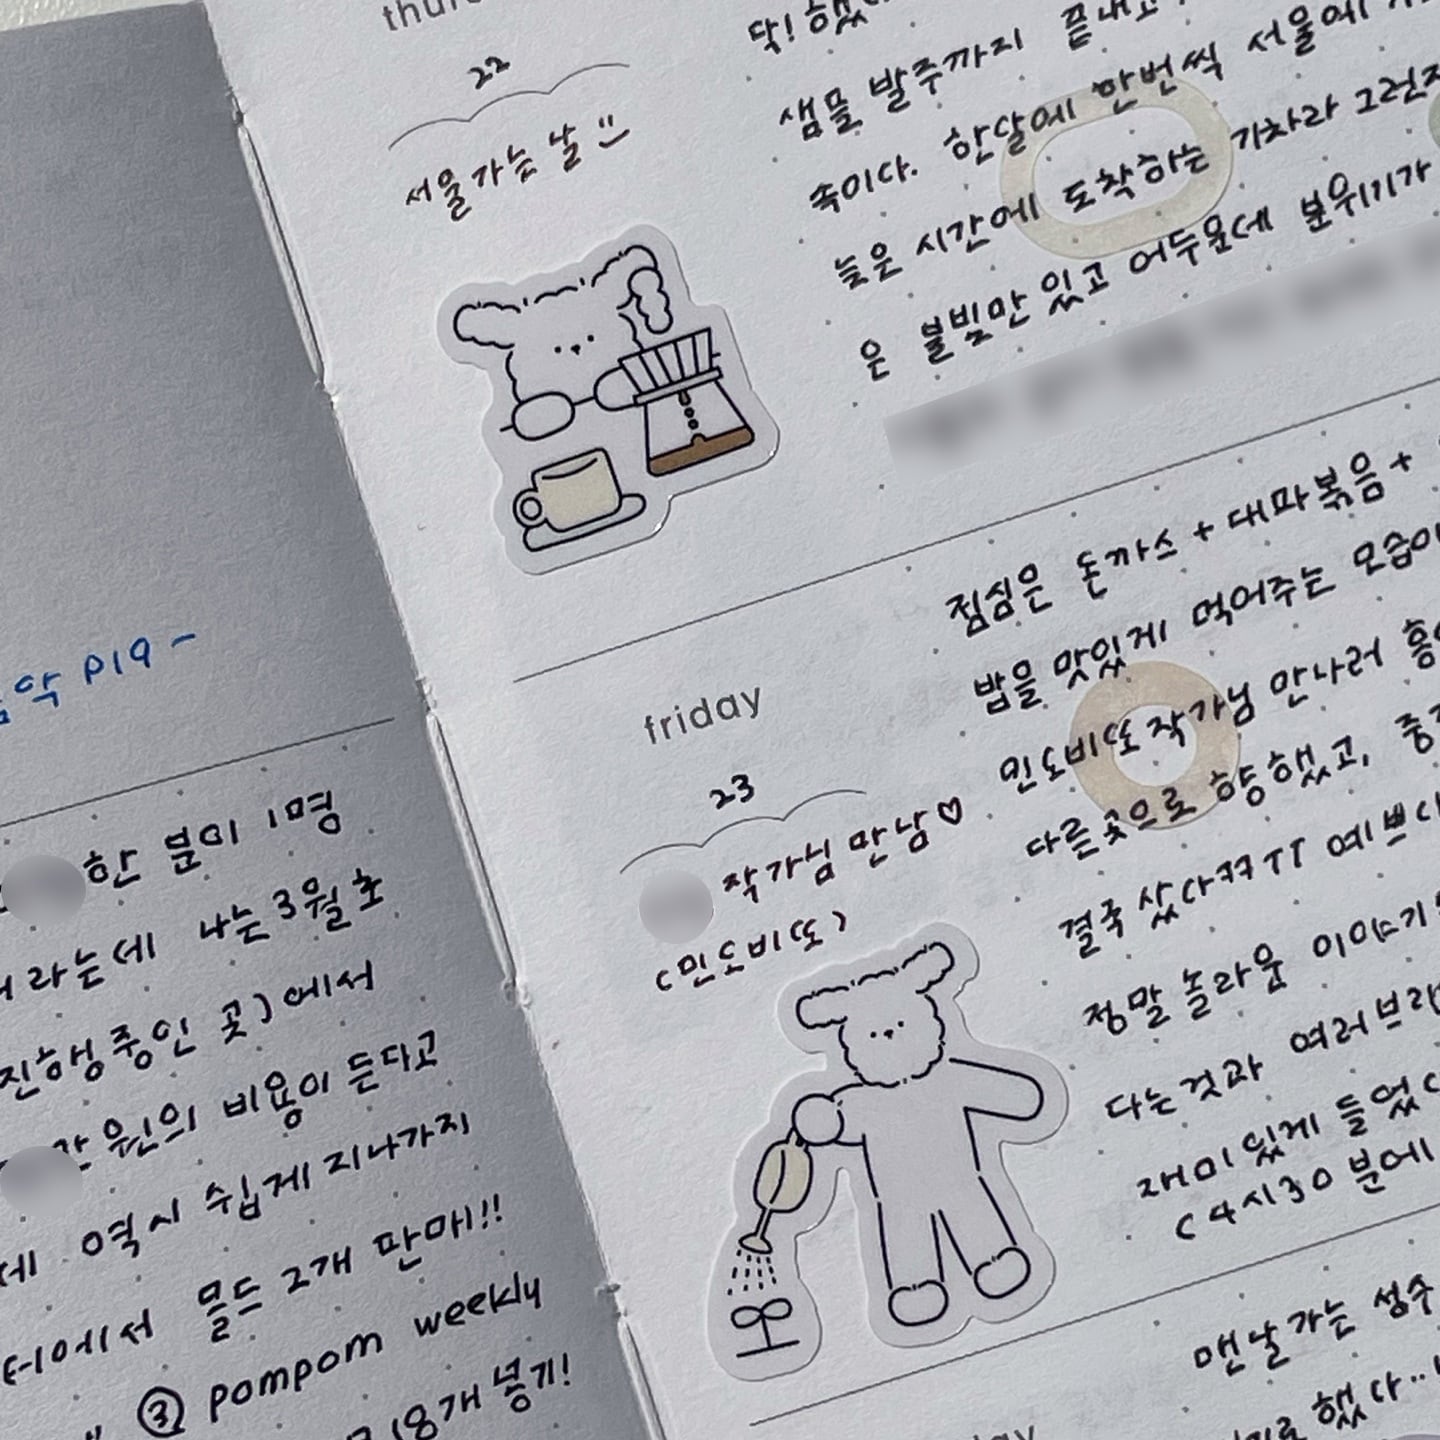 음악 P19 ~
한 분이 1명
라는데 나는 3월 초
진행중인 곳)에서
만 원의 비용이 든다고
역시 쉽게 지나가지
에서 몰드 2개 판매!!
③ pompom weekly
18개 넣기!
22
서울가는 날
닥! 했
샘플 발주까지 끝내고
속이다. 한달에 한번씩 서울에
늦은 시간에 도착하는 기차라 그런지
은 불빛만 있고 어두운데 분위기가
friday
23
작가님 만남♡
(민도비또)
점심은 돈까스 + 대파볶음 +
밥을 맛있게 먹어주는 모습이
민도비또 작가님 만나러
다른곳으로 향했고,
결국 샀다ㅋㅋㅜㅜ 예쁘다
정말 놀라운 이야기
다는것과 여러브랜
재미있게 들었다
(4시30분에
맨날 가는 성수
로 했다..